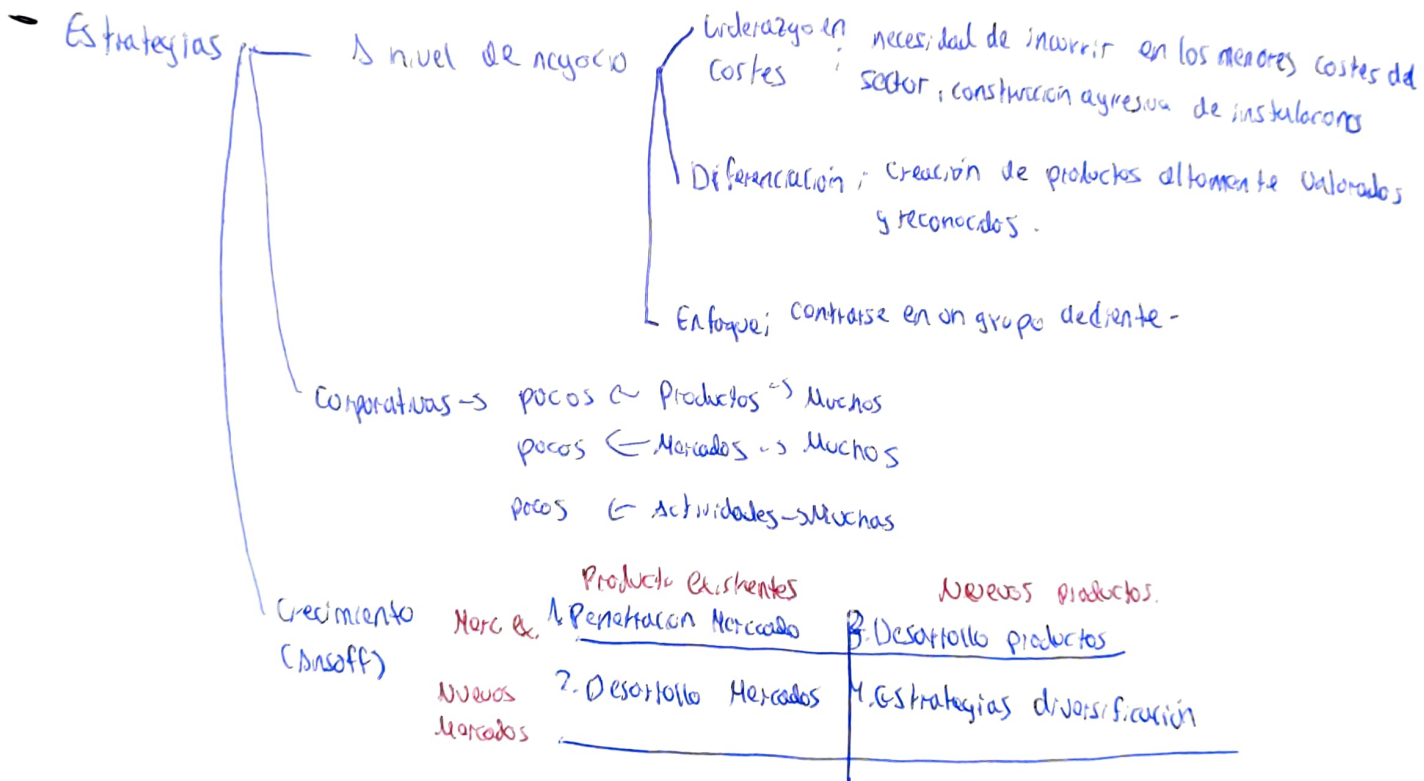 - Estrategias
A nivel de negocio
Liderazgo en costes ; necesidad de incurrir en los menores costes del
sector, construcción agresiva de instalacions
Diferenciación ; Creación de productos altamente valorados
y reconocidos.
Enfoque; contrarse en un grupo de cliente-
Corporativas -> pocos <- Productos -> Muchos
pocos <- Mercados -> Muchos
pocos <- Actividades -> Muchas
Crecimiento
(Ansoff)
Producto existentes Nuevos productos.
Merc ex. 1. Penetracion Mercado 3. Desarrollo productos
Nuevos
Mercados
2. Desarrollo Mercados 4. Estrategias diversificación